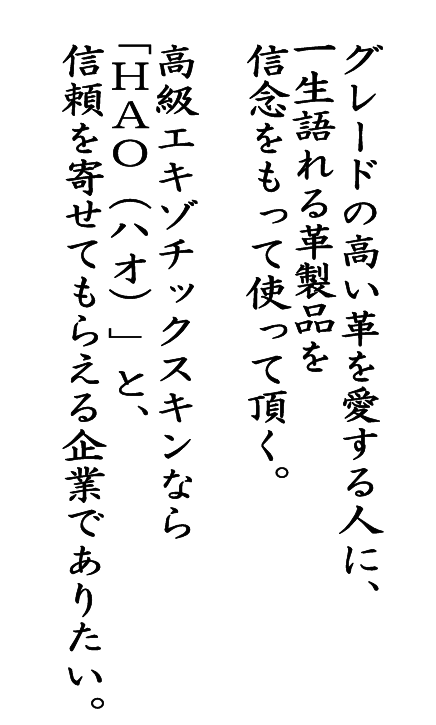 グレードの高い革を愛する人に、
一生語れる革製品を
信念をもって使って頂く。
高級エキゾチックスキンなら
「HAO（ハオ）」と、
信頼を寄せてもらえる企業でありたい。